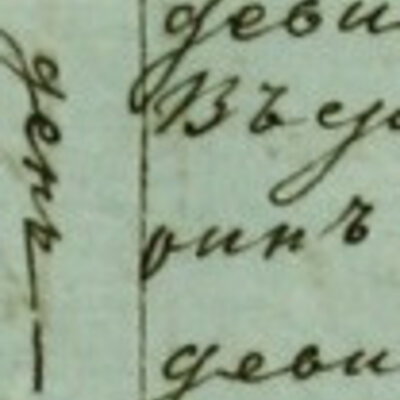 день —
деви
Въ су
оинъ
деви